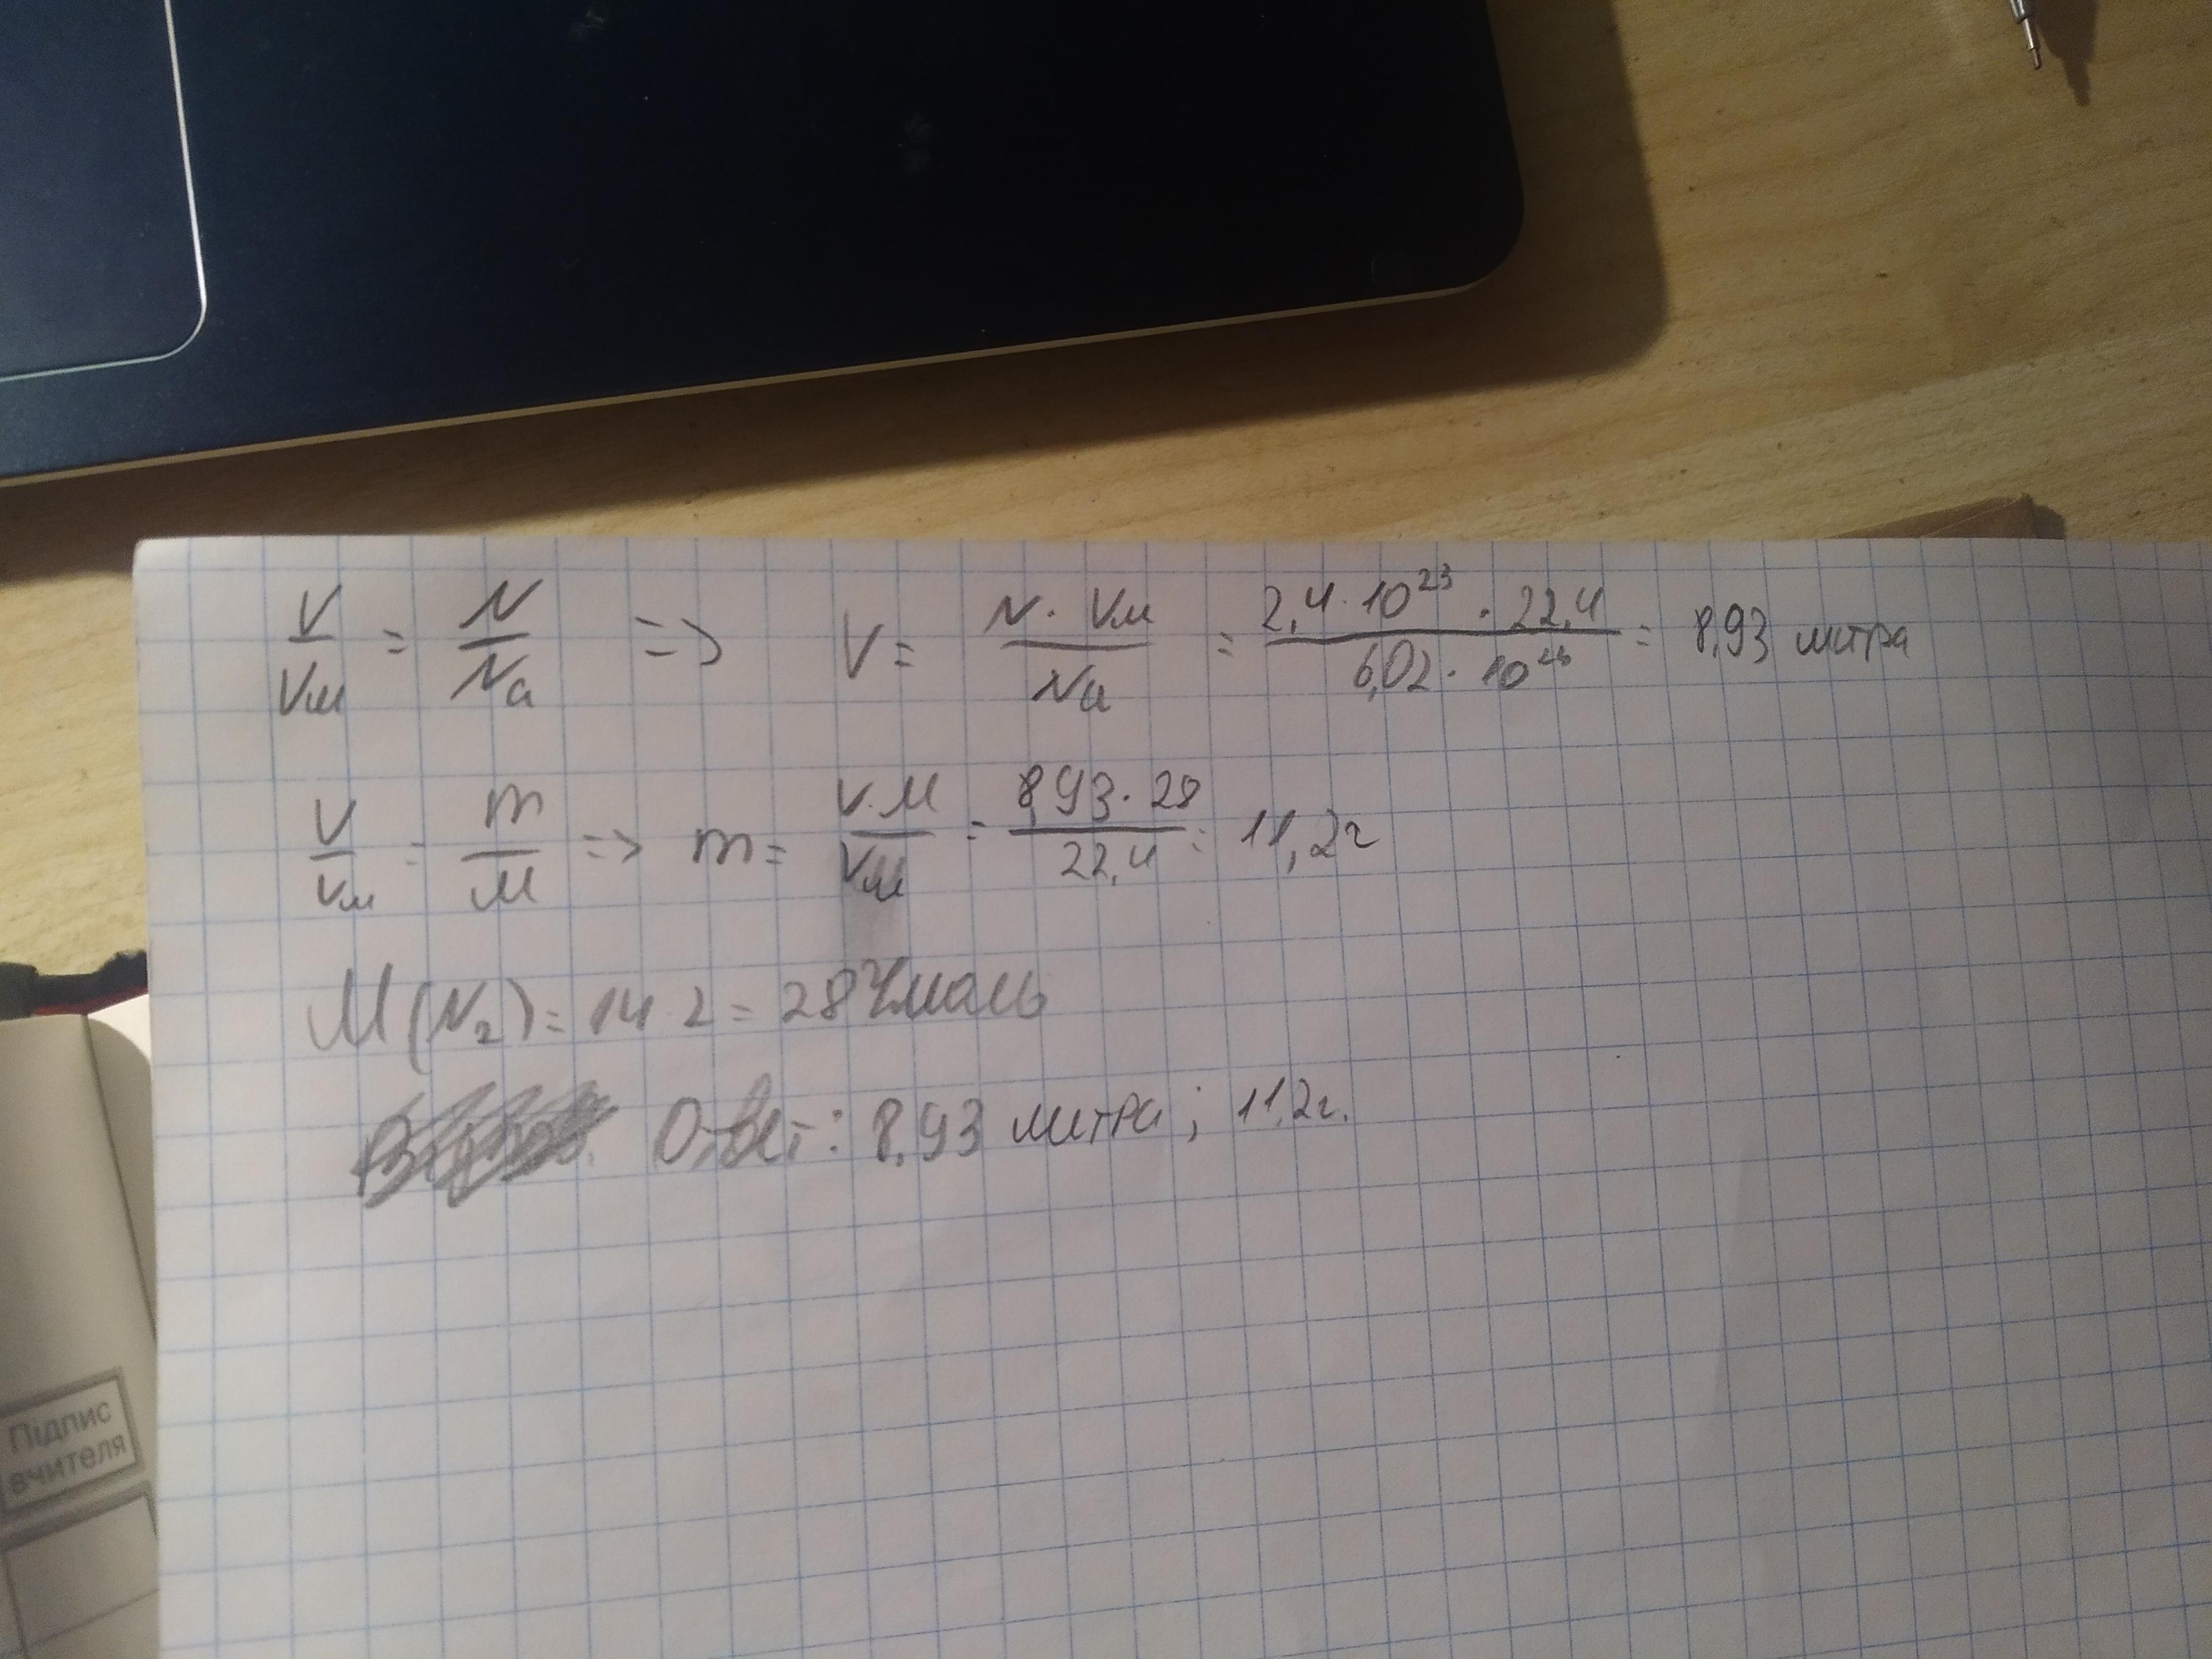 V/Vм = N/Na => V = N · Vм/Na = 2,4 · 10²³ · 22,4/6,02 · 10²³ = 8,93 литра
V/Vм = m/M => m = V · M/Vм = 8,93 · 28/22,4 = 11,2г
M(N₂) = 14 · 2 = 28 г/моль
Ответ: 8,93 литра; 11,2г.
Підпис
вчителя